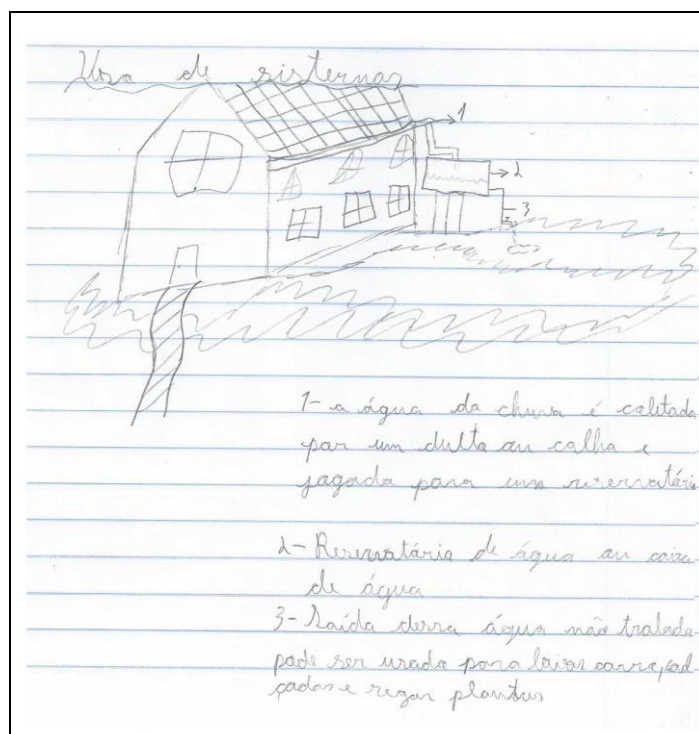 Uso de sisternas
1
2
3
1- a água da chuva é coletada
por um dulto ou calha e
jogada para um reservatório
2- Reservatório de água ou caixa
de água
3- Saída dessa água não tratada
pode ser usada para lavar carro, cal-
çadas e regar plantas